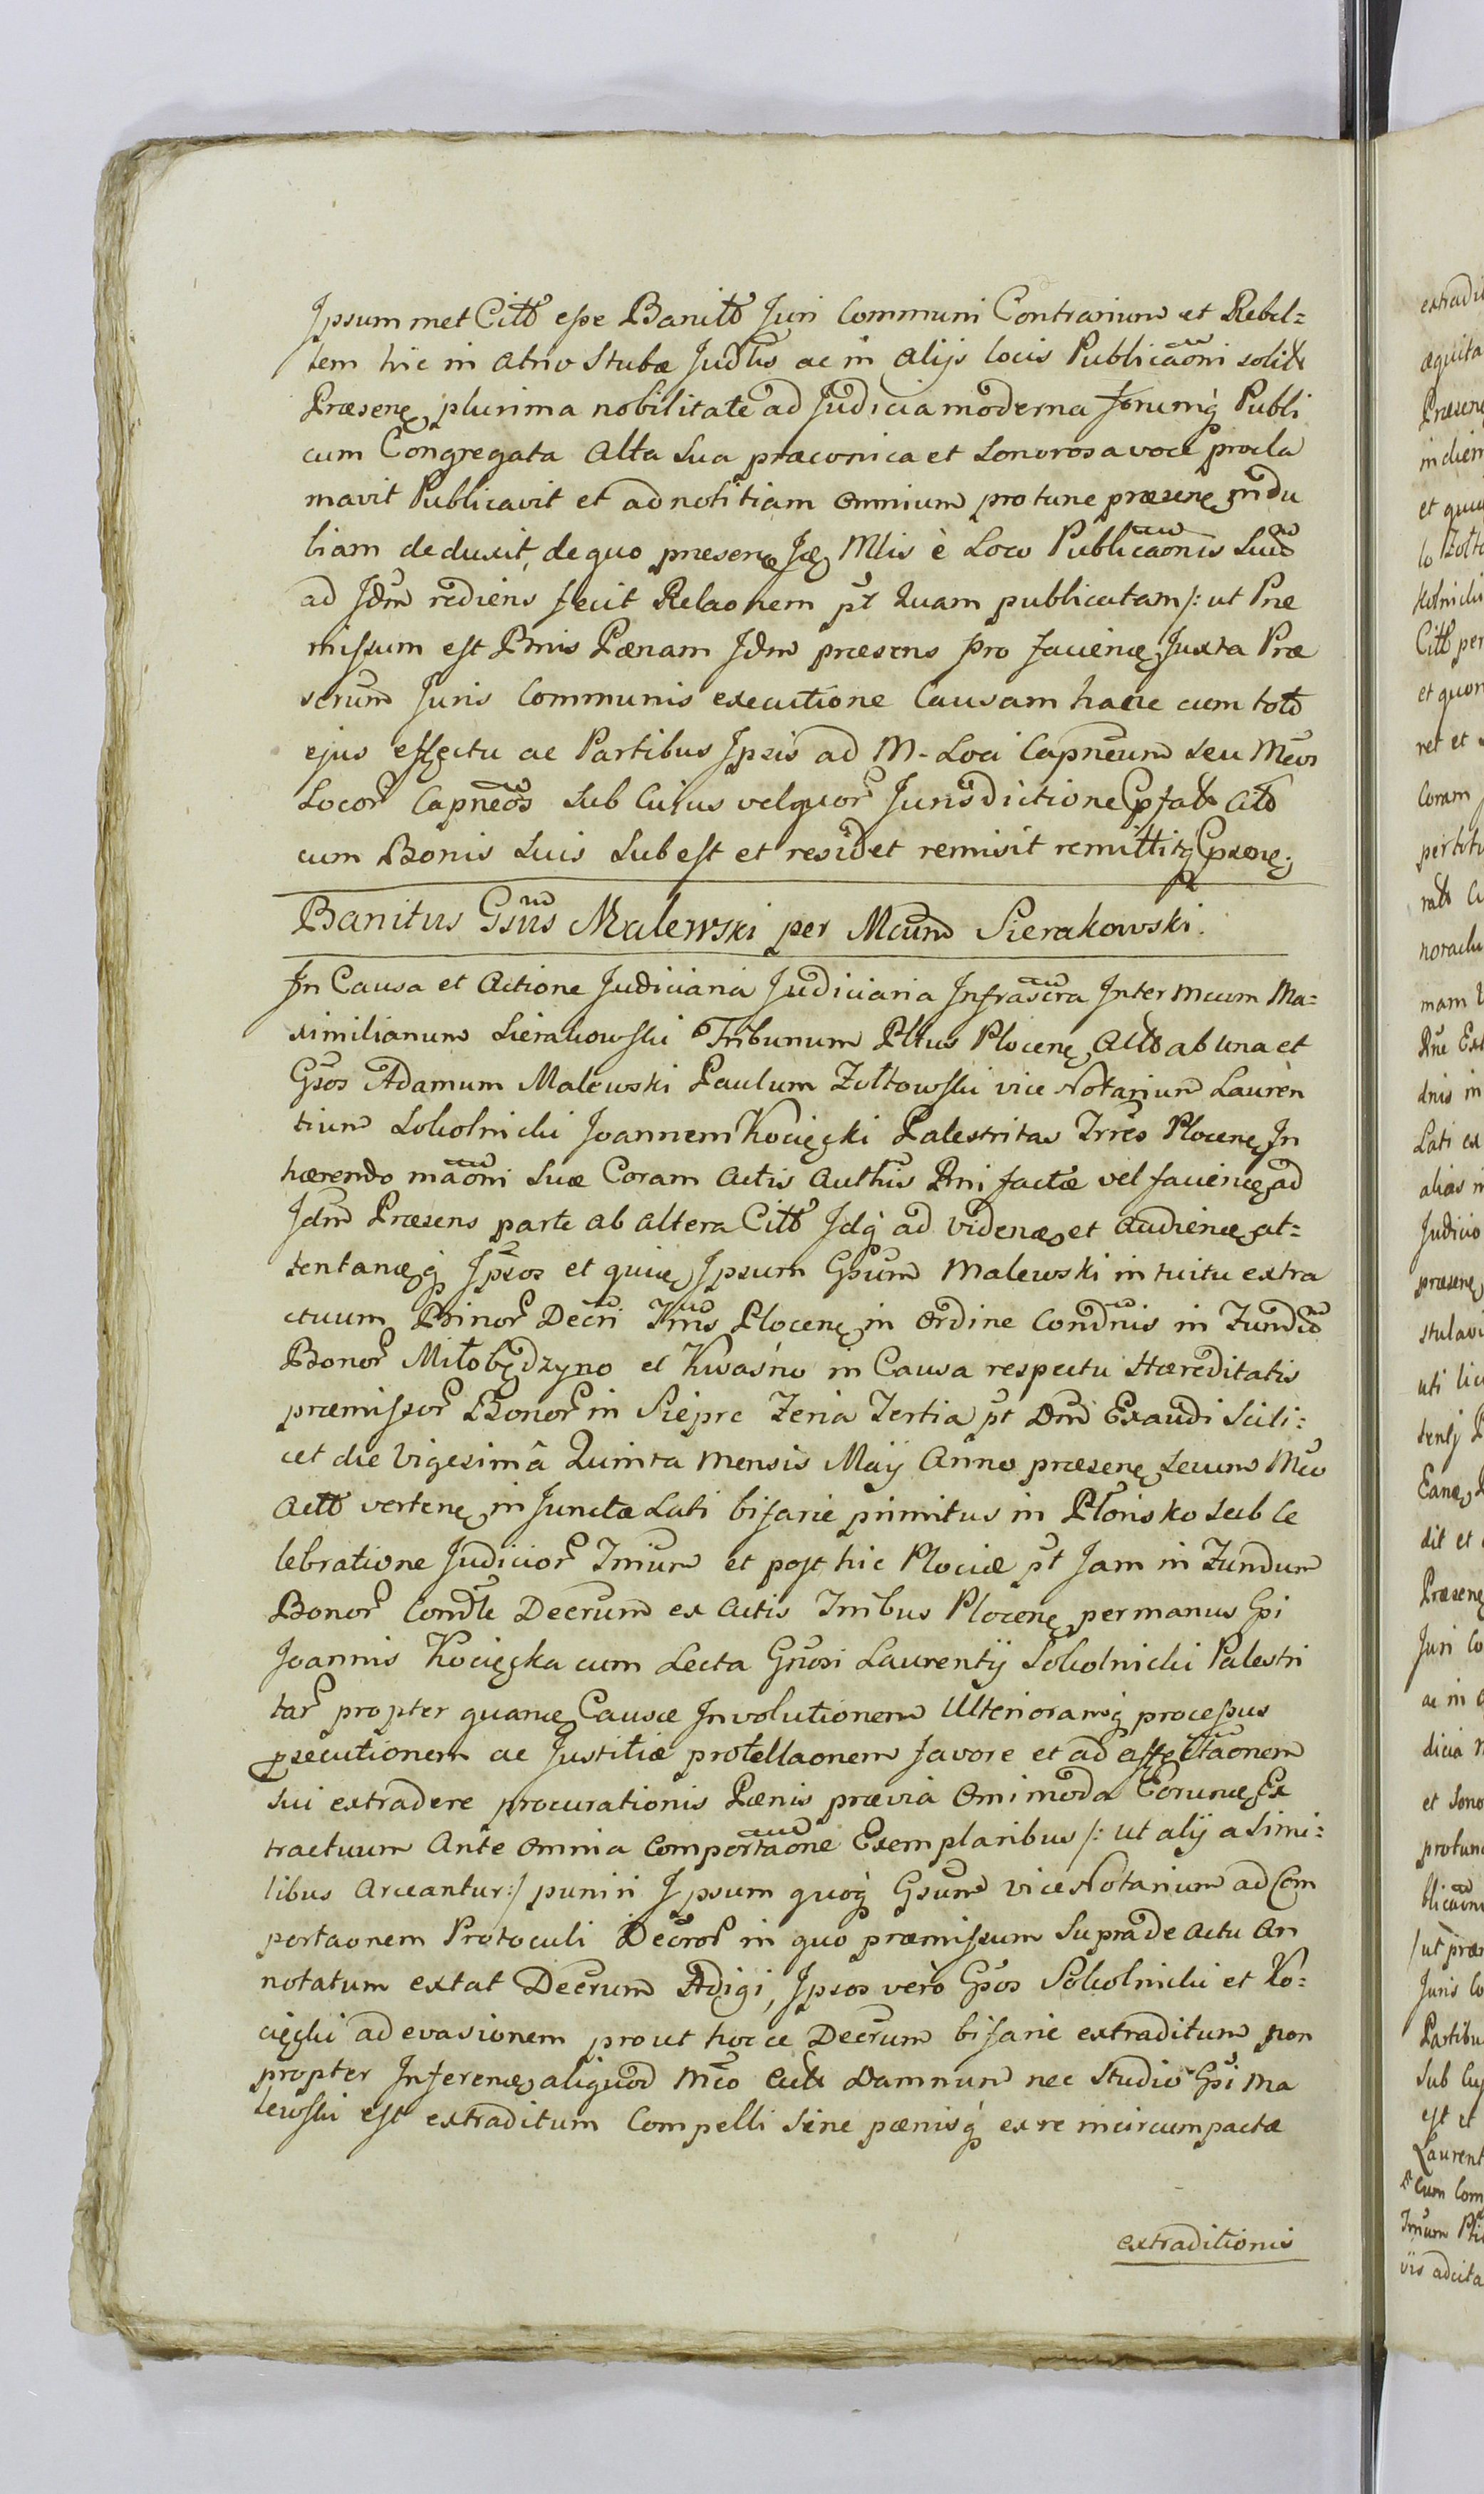 Ipsum met Citt̃ esse Banitt̃ Juri Communi Contrarium et Rebel=
lem hic in atrio Stubæ Judlis ac in alijs locis Publicaõni solitt̃
Præsenę plurima nobilitate ad Judicia moderna forumq̢ Publi
cum Congregata Alta Sua præconica et Sonorosa voce procla
mavit Publicavit et ad notitiam omnium pro tunc præsenę Indu
biam deduxit, de quo præsenę Ję Mlis è Loco Publicaõnis Suo
ad Jdm rediens fecit Relaonem pt̃ Quam publicatam /: ut Præ
missum est Pnis Pænam Jdm præsens pro facienę Juxta Præ
scrum Juris Communis executione Causam hanc cum toto
ejus effectu ac Partibus Ipsis ad M. Loci Capneum seu Mcos
Locor̃ Capneos Sub Cuius vel quor̃ Jurisdictione Cittt
cum Bonis Suis Subest et residet remisit remittitq̢
Banitus Gsus Malewski per Mcum Sierakowski.
In Causa et Actione Judiciaria Judiciaria Infrascra Inter Mcum Ma=
ximilianum Sierakowski Tribunum Pltus Plocenę Actt̃ ab una et
Gsos Adamum Malewski Paulum Zołtowski vice Notarium Lauren
tium Sokolnicki Joannem Kocięcki Palestritas Trres Plocenę In
hærendo maõni Suæ Coram Actis Authis Pni factæ vel facienę ad
Jdm Præsens parte ab altera Citt̃ Jdq̢ ad videnę et audienę at=
tentanę q̢ Ipsos et Ipsum Gsum Malewski intuitu extra
ctuum Binor̃ Decri Trris Plocenę in ordine Condnis in Fundo
Bonor̃ Miłobędzyno et Kwaśno in Causa respectu Hæreditatis
præmissor̃ Bonor̃ in Sieprc Feria Tertia pt Dnĩ Exaudi Scili=
cet die Vigesimâ Quinta mensis Maij Anno præsenę Secum Mco
Actt̃ vertenę in Junctæ Lati bifarie primitus in Płońsko Sub Ce
lebratione Judicior̃ Trrium et post hic Plociæ pt̃ Jam in Fundum
Bonor̃ Condle Decrum ex Actis Trribus Plocenę per manus Gsi
Joannis Kocięcka cum Lecta Gnrosi Laurentij Sokolnicki Palestri
tar̃ propter quamę Causæ Involutionem Ulterioramq̢ processus
psecutionem ac Justitiæ protellaonem favore et ad affectaonem
Sui extradere procurationis Pænis prævia Omimoda Eorumę Ex
tractuum Ante omnia Comportaõne Exemplaribus /: ut alij a Simi=
libus Arceantur:/ puniri Ipsum quoq̢ Gsum vice Notarium ad Com
portaonem Protoculi Decror̃ in quo præmissum Supra de actu An
notatum extat Decrum Adigi, Ipsos verò Gsos Sokolnicki et Ko=
cięcki ad evasionem prout hocce Decrum bifarie extraditum non
propter Inferenę aliquod Mco Actt̃ Damnum nec Studio Gsi Ma
lewski est extraditum Compelli Sine pænisq̢ ex re incircumpactæ
extraditionis